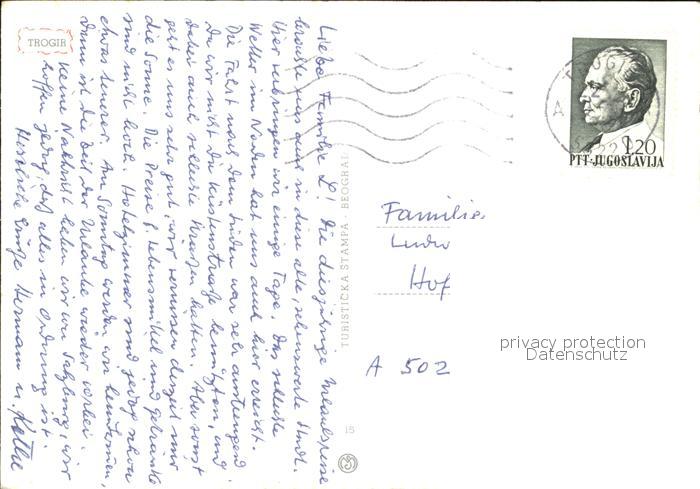 TROGIR
Liebe Familie L! Die diesjährige Urlaubsreise
brachte uns auch in diese alte, sehenswerte Stadt.
Hier verbringen wir einige Tage. Das schlechte
Wetter im Norden hat uns auch hier erreicht.
Die Fahrt nach dem Süden war sehr anstrengend,
da wir nicht die Küstenstraße benützten, und
daher auch schlechte Straßen hatten. Aber sonst
geht es uns sehr gut, wir vermissen derzeit nur
die Sonne. Die Preise f. Lebensmittel und Getränke
sind nicht hoch. Hotelzimmer sind jedoch schon
etwas teurer. Am Sonntag werden wir heimfahren,
dann ist die Zeit des Urlaubs wieder vorbei.
Keine Nachricht haben wir von Salzburg, wir
hoffen jedoch, daß alles in Ordnung ist.
Herzliche Grüße Hermann u. Käthe
TURISTIČKA ŠTAMPA - BEOGRAD
15
TROGIR
A
1.20
PTT·JUGOSLAVIJA
Familie
Ludw
Hof
A 502
privacy protection
Datenschutz